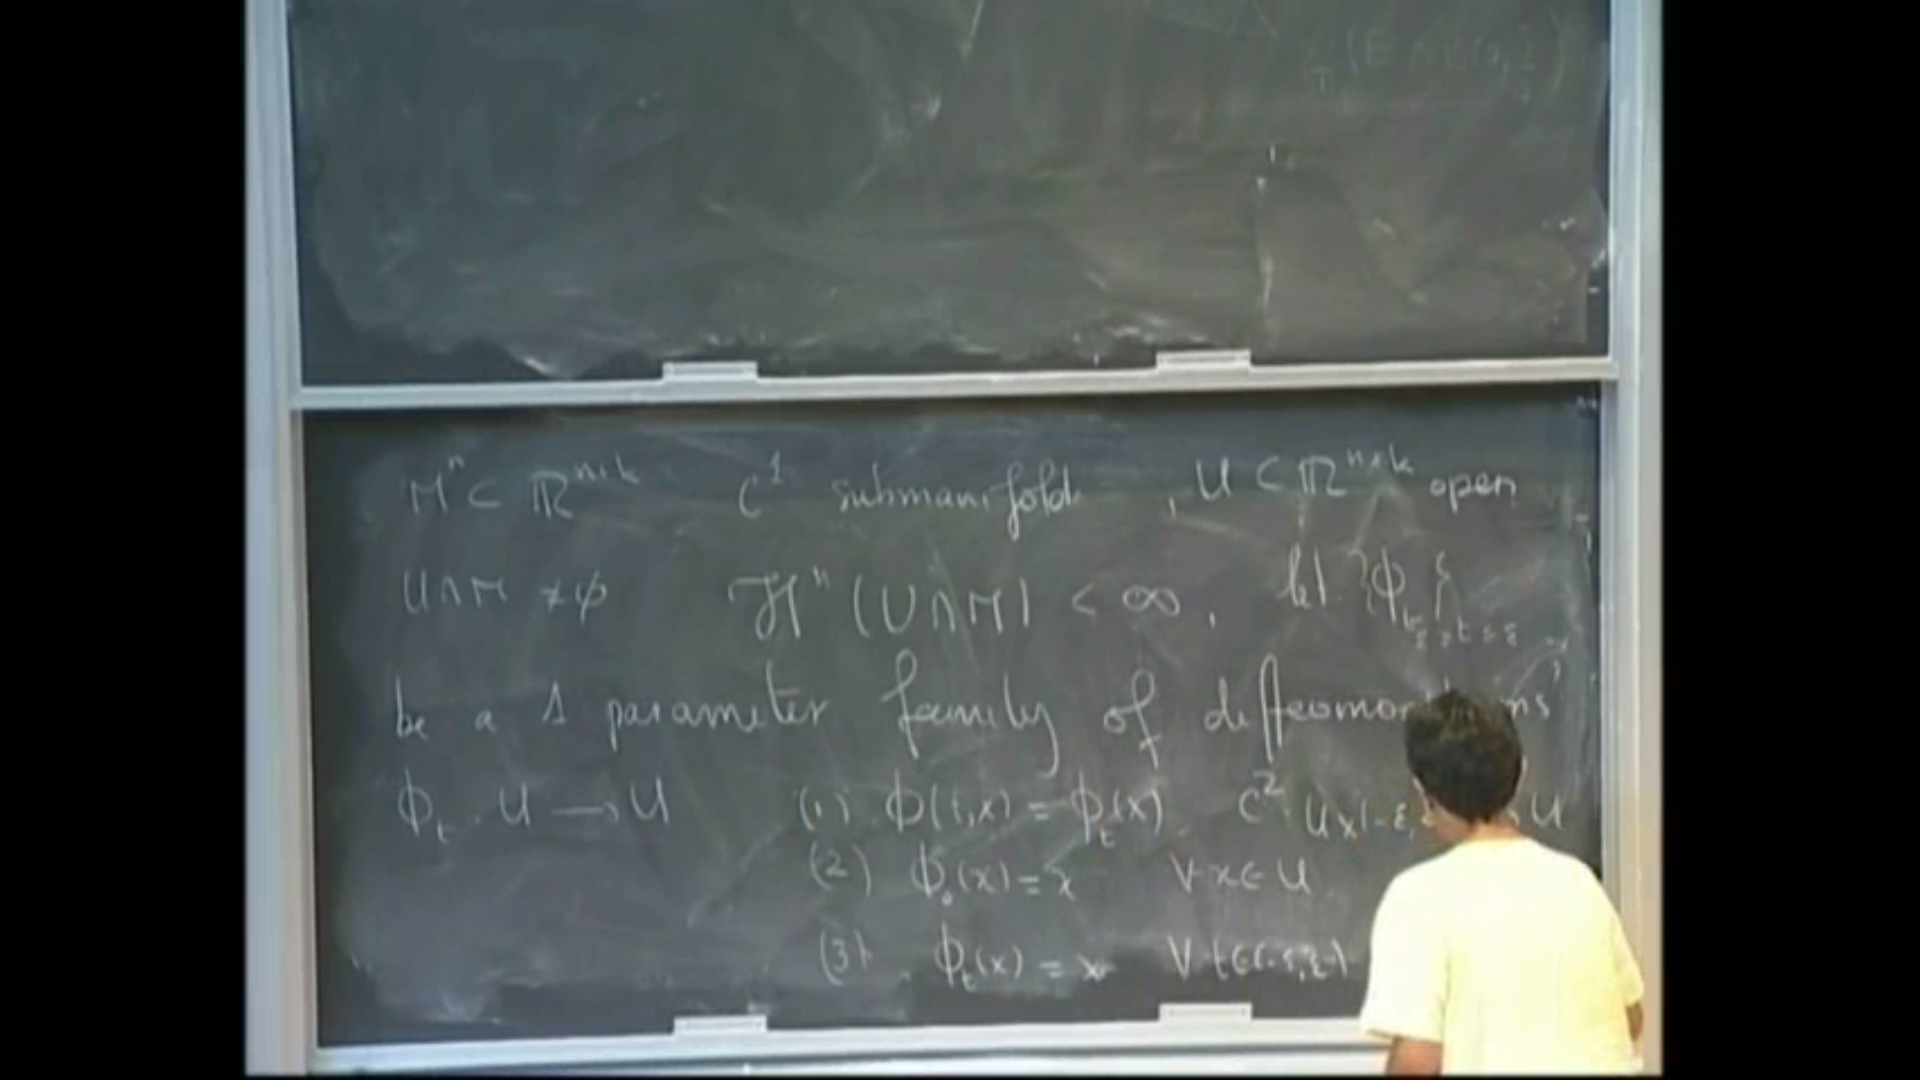 (E ∩ B(0,
Mⁿ ⊂ ℝⁿ⁺ᵏ C¹ submanifold , U ⊂ ℝⁿ⁺ᵏ open
U∩M ≠ φ ℋⁿ (U∩M) < ∞ , let {ϕ_t}
be a 1 parameter family of diffeomor ms
ϕ_t : U → U (1) ϕ(t,x) = ϕ_t(x) C² : U×(-ε, U
(2) ϕ₀(x) = x ∀ x ∈ U
(3) ϕ_t(x) = x ∀ t ∈ (-ε,ε)